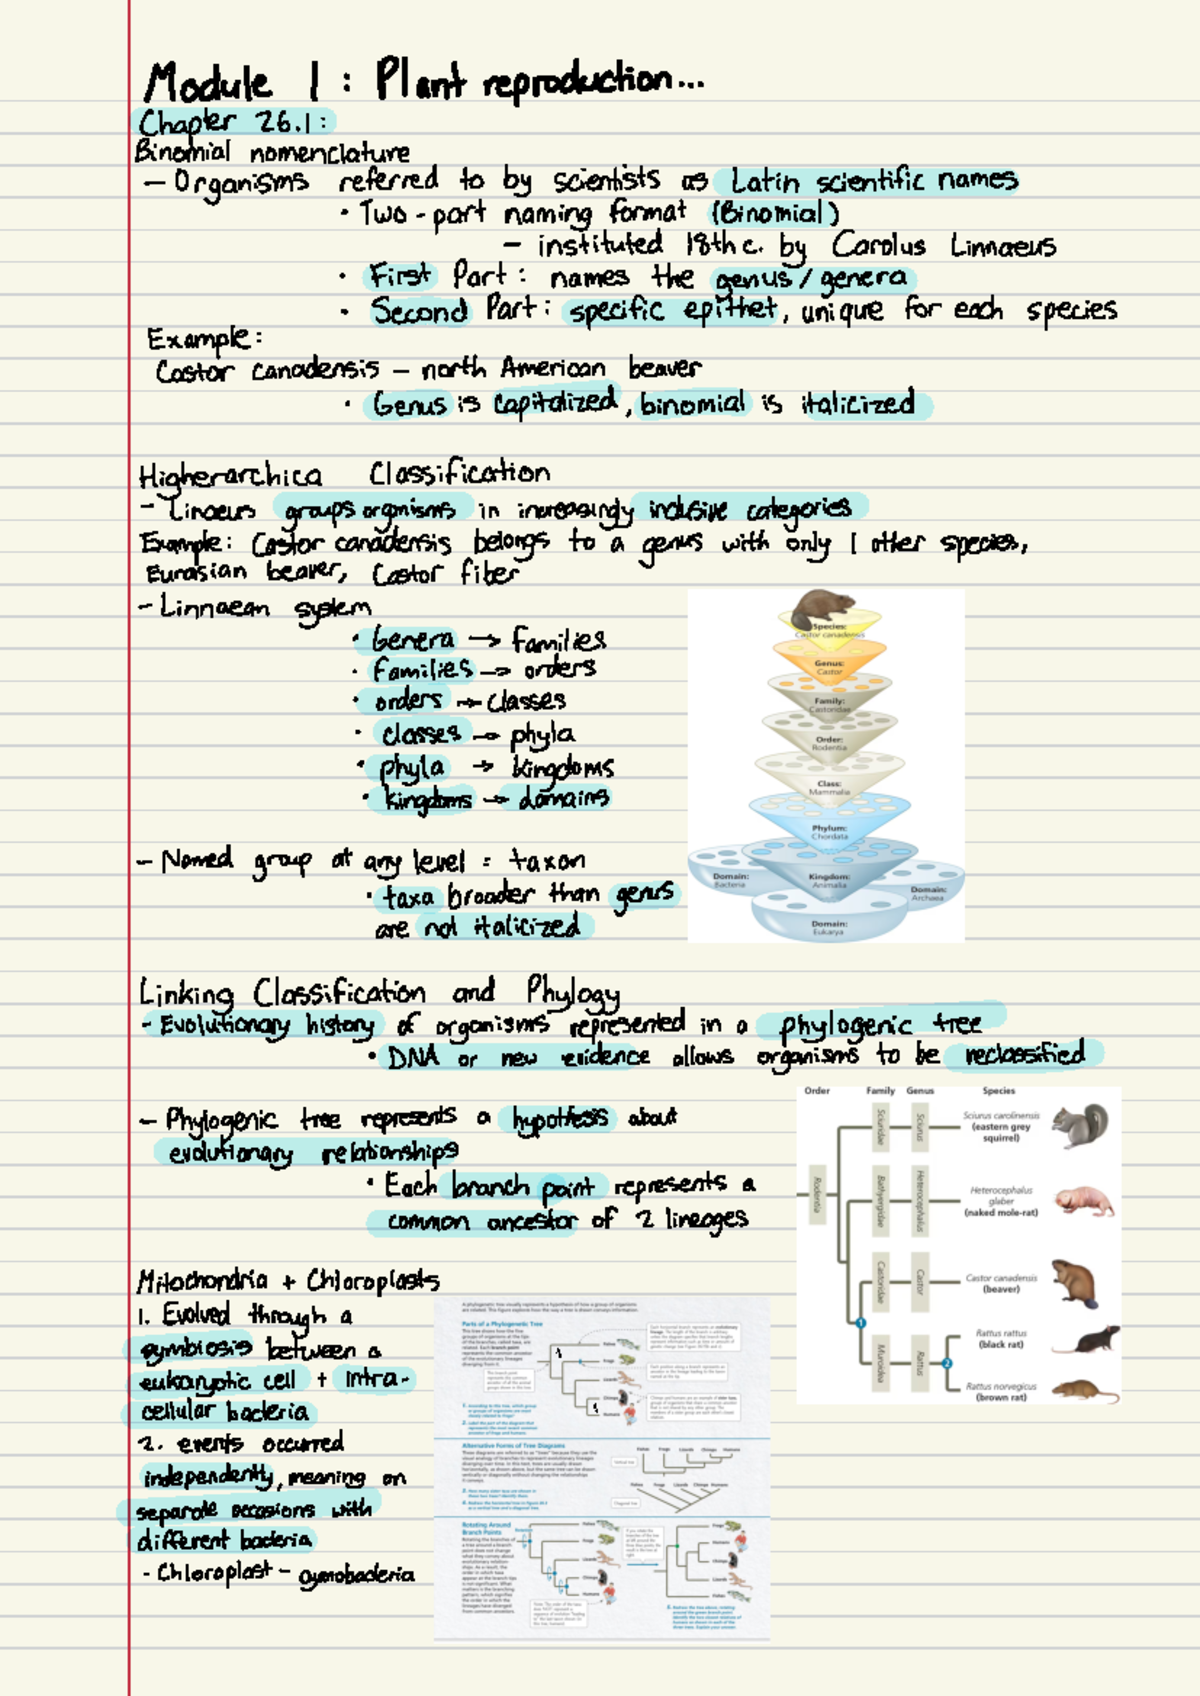 Module 1 : Plant reproduction...
Chapter 26.1:
Binomial nomenclature
— Organisms referred to by scientists as Latin scientific names
· Two-part naming format (Binomial)
— instituted 18th c. by Carolus Linnaeus
· First Part: names the genus/genera
· Second Part: specific epithet, unique for each species
Example:
Castor canadensis — north American beaver
· Genus is capitalized, binomial is italicized
Higherarchica Classification
- Linaeus groups orgnisms in increasingly inclusive categories
Example: Castor canadensis belongs to a genus with only 1 other species,
Eurasian beaver, Castor fiber
- Linnaean system
· Genera → families
· Families → orders
· orders → classes
· classes → phyla
· phyla → kingdoms
· kingdoms → domains
Species:
Castor canadensis
Genus:
Castor
Family:
Castoridae
Order:
Rodentia
Class:
Mammalia
Phylum:
Chordata
Domain:
Bacteria
Kingdom:
Animalia
Domain:
Archaea
Domain:
Eukarya
— Named group at any level = taxon
· taxa broader than genus
are not italicized
Linking Classification and Phylogy
- Evolutionary history of organisms represented in a phylogenic tree
· DNA or new evidence allows organisms to be reclassified
— Phylogenic tree represents a hypothesis about
evolutionary relationships
· Each branch point represents a
common ancestor of 2 lineages
Order Family Genus Species
Rodentia
Sciuridae
Sciurus
Sciurus carolinensis
(eastern grey
squirrel)
Bathyergidae
Heterocephalus
Heterocephalus
glaber
(naked mole-rat)
Castoridae
Castor
Castor canadensis
(beaver)
1
Muroidea
Rattus
2
Rattus rattus
(black rat)
Rattus norvegicus
(brown rat)
Mitochondria + Chloroplasts
1. Evolved through a
symbiosis between a
eukaryotic cell + intra-
cellular bacteria
2. events occurred
independently, meaning on
separate occasions with
different bacteria
- Chloroplast - cyanobacteria
Parts of a Phylogenetic Tree
Alternative Forms of Tree Diagrams
Rotating Around
Branch Points